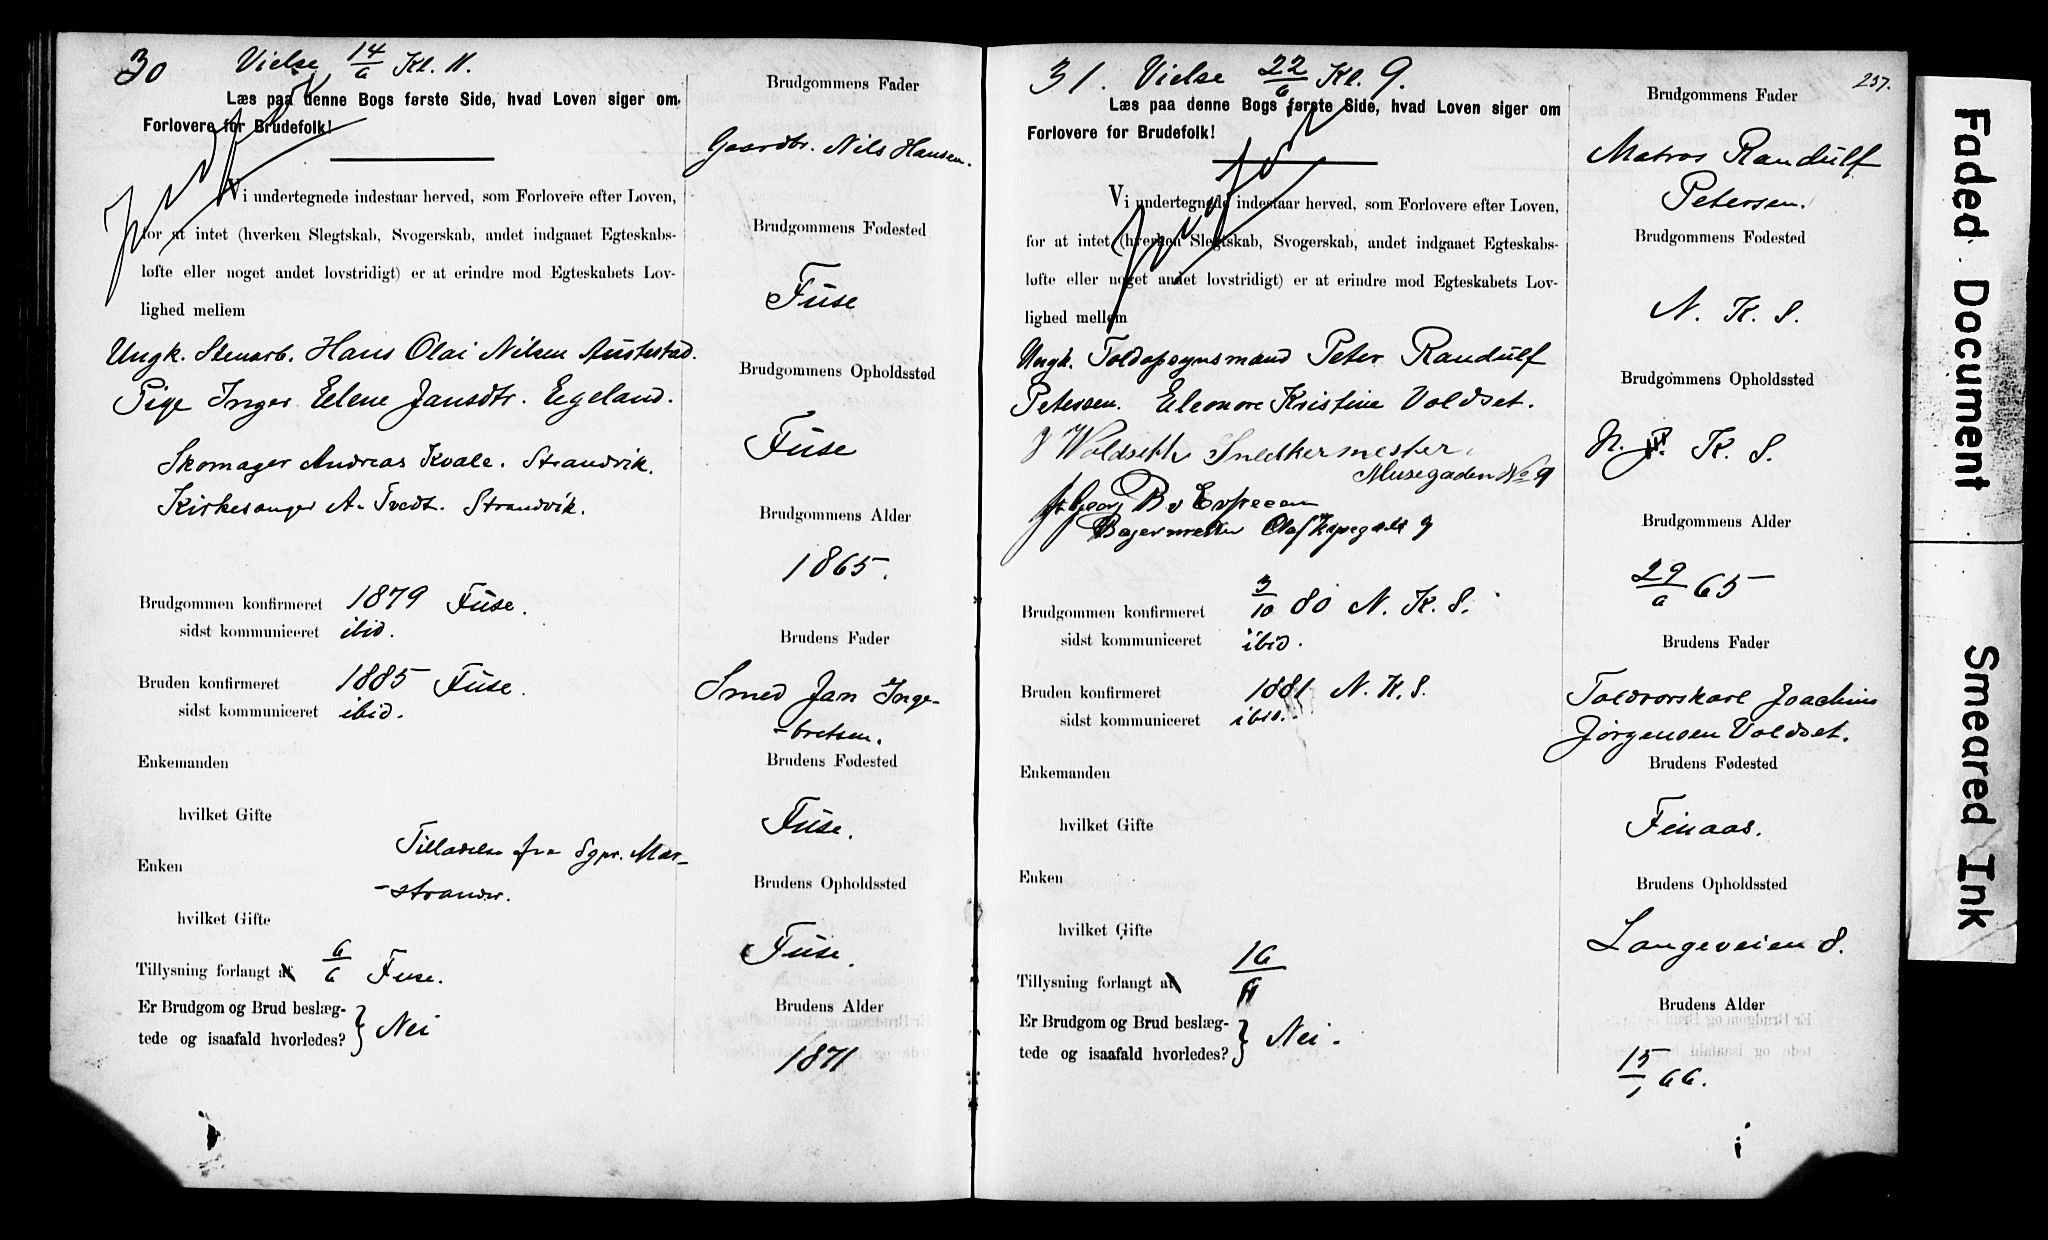 30 Vielse 14/6 Kl. 11.
Læs paa denne Bogs første Side, hvad Loven siger om
Forlovere for Brudefolk!
Vi undertegnede indestaar herved, som Forlovere efter Loven,
for at intet (hverken Slegtskab, Svogerskab, andet indgaaet Egteskabs-
løfte eller noget andet lovstridigt) er at erindre mod Egteskabets Lov-
lighed mellem
Ungk. Stenarb. Hans Olai Nilsen Austestad.
Pige Inger Elene Jansdtr. Egeland.
Skomager Andreas Kvale. Strandvik.
Kirkesanger A. Tvedt. Strandvik.
Brudgommen konfirmeret 1879 Fuse.
sidst kommuniceret ibid.
Bruden konfirmeret 1885 Fuse.
sidst kommuniceret ibid.
Enkemanden
hvilket Gifte
Tilladelse fra Sgpr. Mar-
Enken
-strander.
hvilket Gifte
Tillysning forlangt af 6/6 Fuse.
Er Brudgom og Brud beslæg-
tede og isaafald hvorledes? } Nei
Brudgommens Fader
Gaardbr. Nils Hansen.
Brudgommens Fødested
Fuse
Brudgommens Opholdssted
Fuse
Brudgommens Alder
1865.
Brudens Fader
Smed Jan Inge-
-bretsen.
Brudens Fødested
Fuse.
Brudens Opholdssted
Fuse.
Brudens Alder
1871
31. Vielse 22/6 Kl. 9.
Læs paa denne Bogs første Side, hvad Loven siger om
Forlovere for Brudefolk!
Vi undertegnede indestaar herved, som Forlovere efter Loven,
for at intet (hverken Slegtskab, Svogerskab, andet indgaaet Egteskabs-
løfte eller noget andet lovstridigt) er at erindre mod Egteskabets Lov-
lighed mellem
Ungk. Toldopsynsmand Peter Randulf
Petersen. Eleonore Kristine Voldset.
J Woldseth Snedkermester
Musegaden No 9
Brudgommen konfirmeret 3/10 80 N. K. S.
sidst kommuniceret ibid.
Bruden konfirmeret 1881 N. K. S.
sidst kommuniceret ibid.
Enkemanden
hvilket Gifte
Enken
hvilket Gifte
Tillysning forlangt af 16/6
Er Brudgom og Brud beslæg-
tede og isaafald hvorledes? } Nei.
237.
Brudgommens Fader
Matros Randulf
Petersen.
Brudgommens Fødested
N. K. S.
Brudgommens Opholdssted
N. K. S.
Brudgommens Alder
29/6 65
Brudens Fader
Toldrorskarl Joachim
Jørgensen Voldset.
Brudens Fødested
Finaas.
Brudens Opholdssted
Langeveien 8.
Brudens Alder
15/1 66.
Faded Document
Smeared Ink